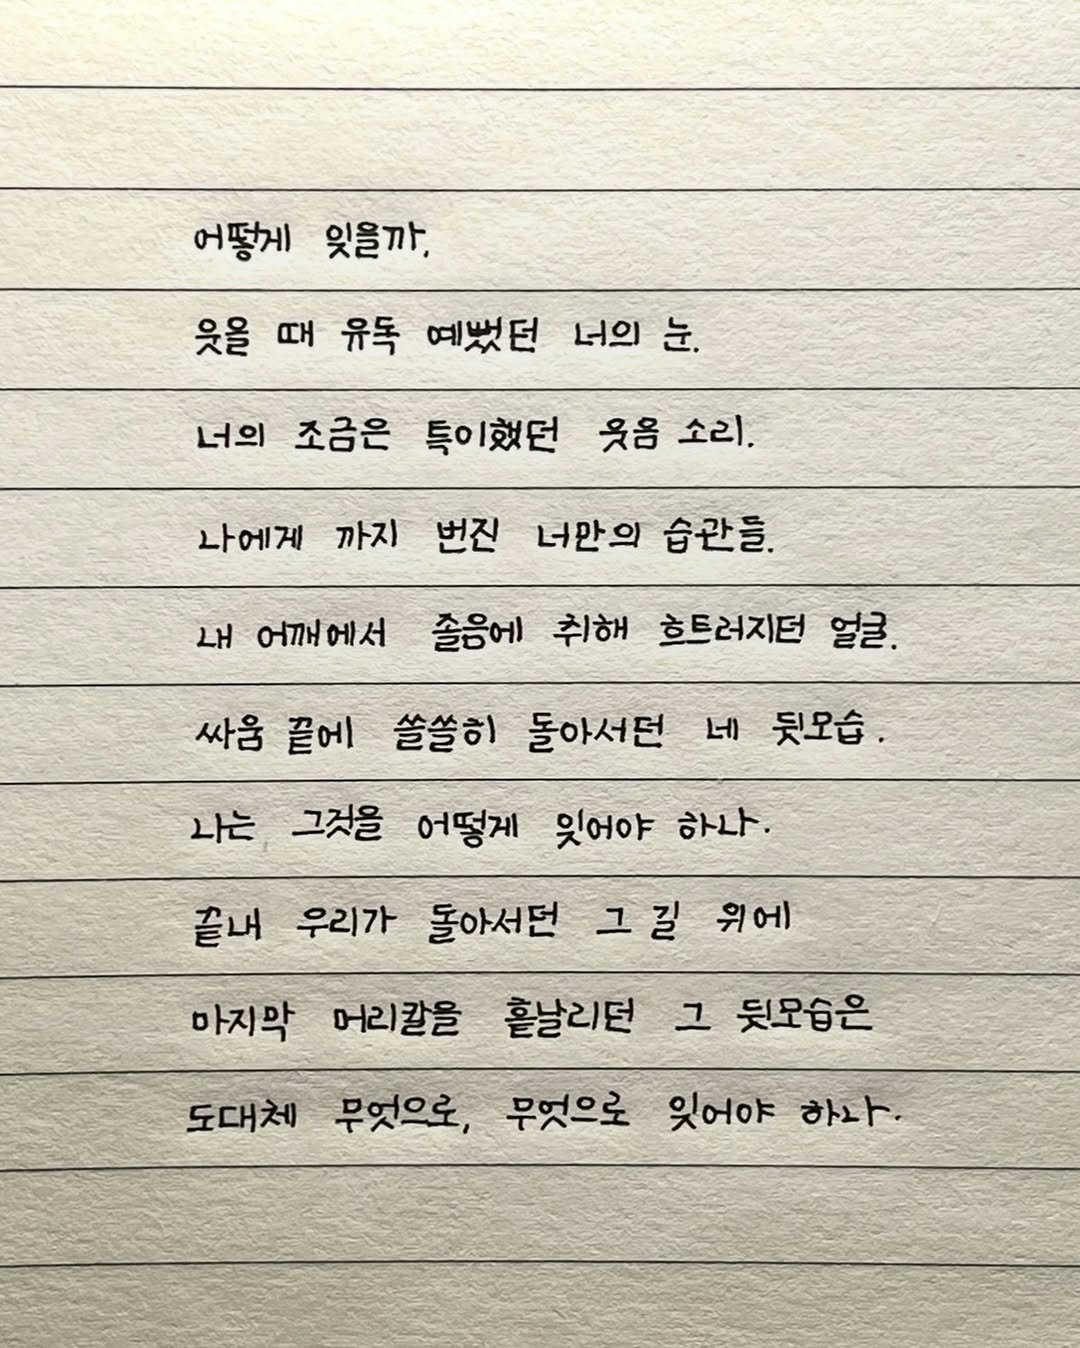 어떻게 잊을까.
웃을 때 유독 예뻤던 너의 눈.
너의 조금은 특이했던 웃음 소리.
나에게 까지 번진 너만의 습관들.
내 어깨에서 졸음에 취해 흐트러지던 얼굴.
싸움 끝에 쓸쓸히 돌아서던 네 뒷모습.
나는 그것을 어떻게 잊어야 하나.
끝내 우리가 돌아서던 그 길 위에
마지막 머리칼을 흩날리던 그 뒷모습은
도대체 무엇으로, 무엇으로 잊어야 하나.